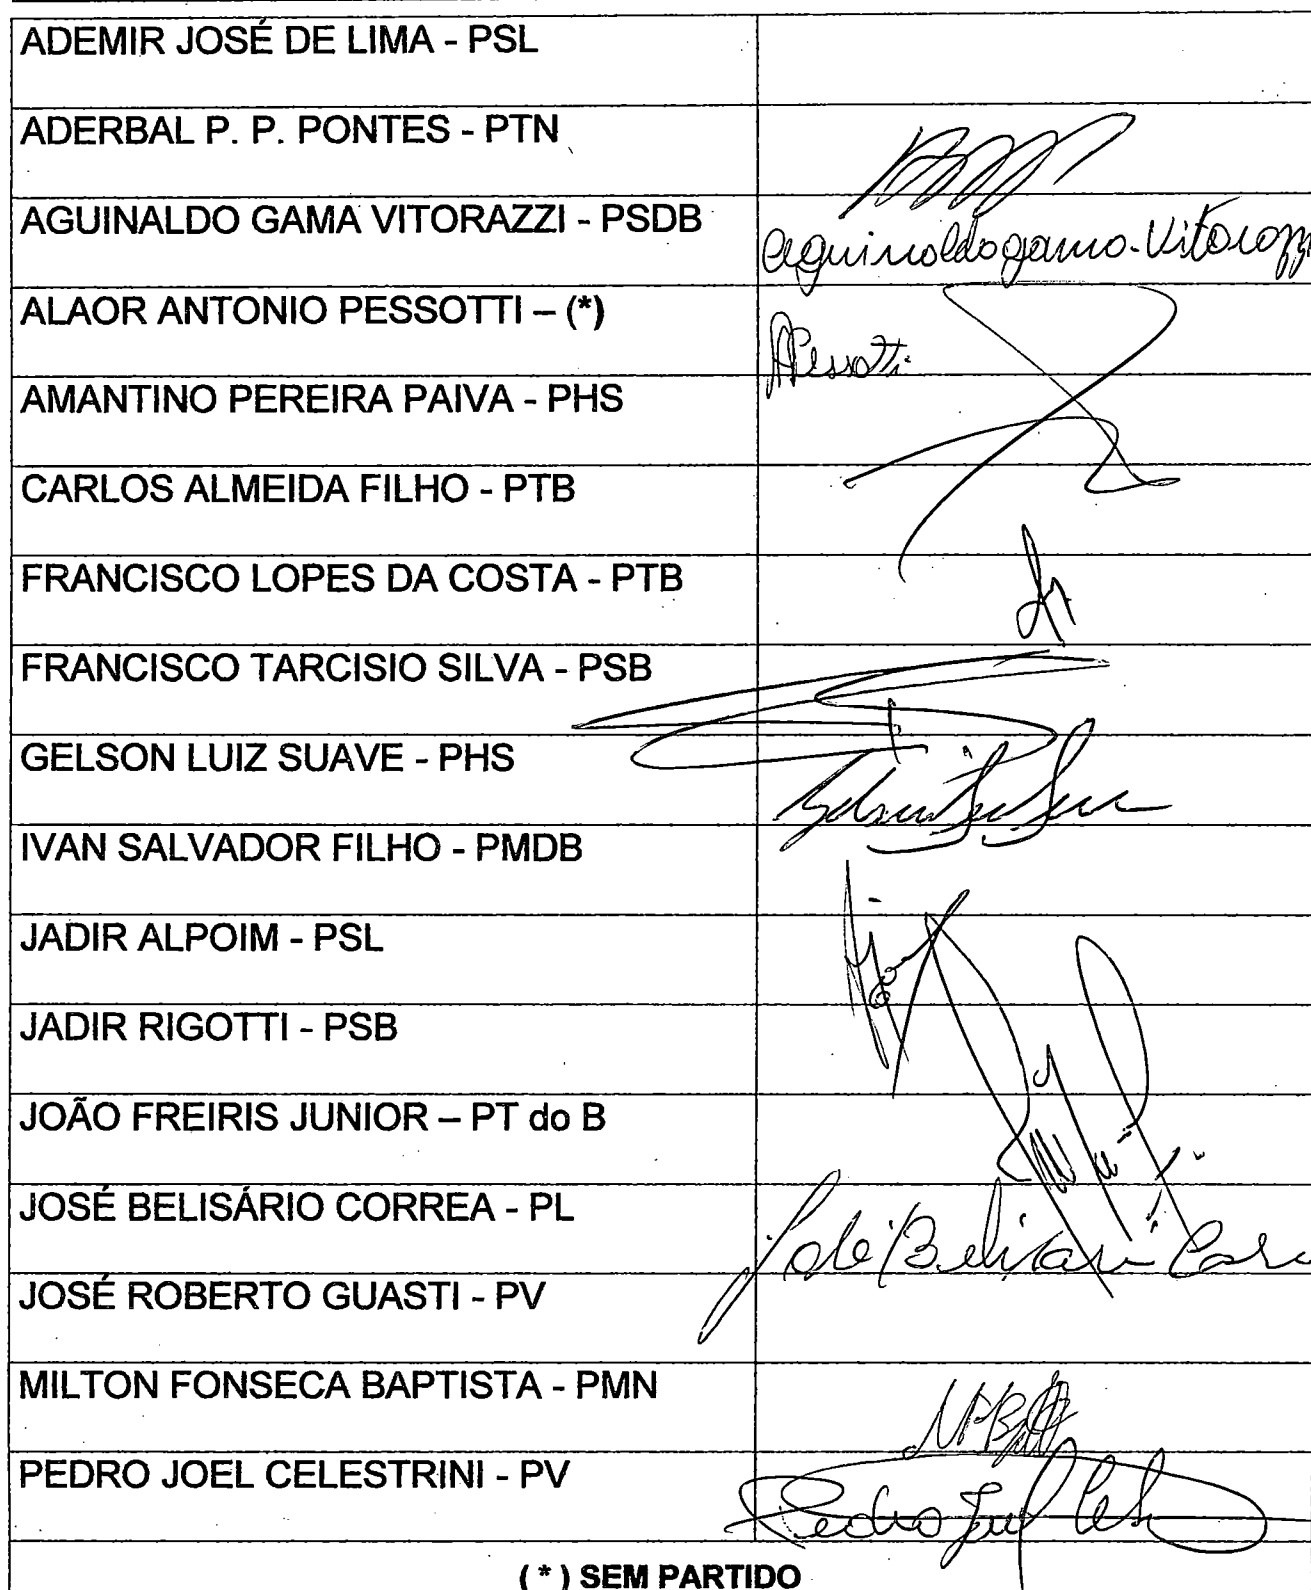 ADEMIR JOSÉ DE LIMA - PSL
ADERBAL P. P. PONTES - PTN
AGUINALDO GAMA VITORAZZI - PSDB
Aguinaldo gama. Vitorazzi
ALAOR ANTONIO PESSOTTI – (*)
APessotti
AMANTINO PEREIRA PAIVA - PHS
CARLOS ALMEIDA FILHO - PTB
FRANCISCO LOPES DA COSTA - PTB
FRANCISCO TARCISIO SILVA - PSB
GELSON LUIZ SUAVE - PHS
IVAN SALVADOR FILHO - PMDB
JADIR ALPOIM - PSL
JADIR RIGOTTI - PSB
JOÃO FREIRIS JUNIOR – PT do B
JOSÉ BELISÁRIO CORREA - PL
José Belisari
JOSÉ ROBERTO GUASTI - PV
MILTON FONSECA BAPTISTA - PMN
PEDRO JOEL CELESTRINI - PV
Pedro Joel
( * ) SEM PARTIDO